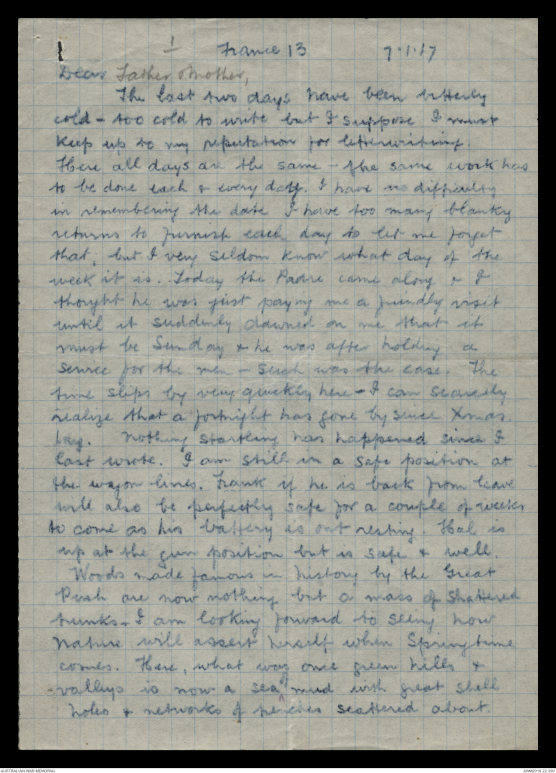 1
France 13 7.1.17
Dear Father & Mother,
The last two days have been bitterly
cold - too cold to write but I suppose I must
keep up to my reputation for letterwriting.
Here all days are the same - the same work has
to be done each & every day. I have no difficulty
in remembering the date I have too many blanky
returns to furnish each day to let me forget
that, but I very seldom know what day of the
week it is. Today the Padre came along & I
thought he was just paying me a friendly visit
until it suddenly dawned on me that it
must be Sunday & he was after holding a
service for the men - such was the case. The
time slips by very quickly here - I can scarcely
realize that a fortnight has gone by since Xmas
Day. Nothing startling has happened since I
last wrote. I am still in a safe position at
the wagon lines. Frank if he is back from leave
will also be perfectly safe for a couple of weeks
to come as his battery is out resting. Hal is
up at the gun position but is safe & well.
Woods made famous in history by the Great
Push are now nothing but a mass of shattered
trunks - I am looking forward to seeing how
Nature will assert herself when Springtime
comes. Here, what was once green hills &
valleys is now a sea mud with great shell
holes & networks of trenches scattered about.
AUSTRALIAN WAR MEMORIAL